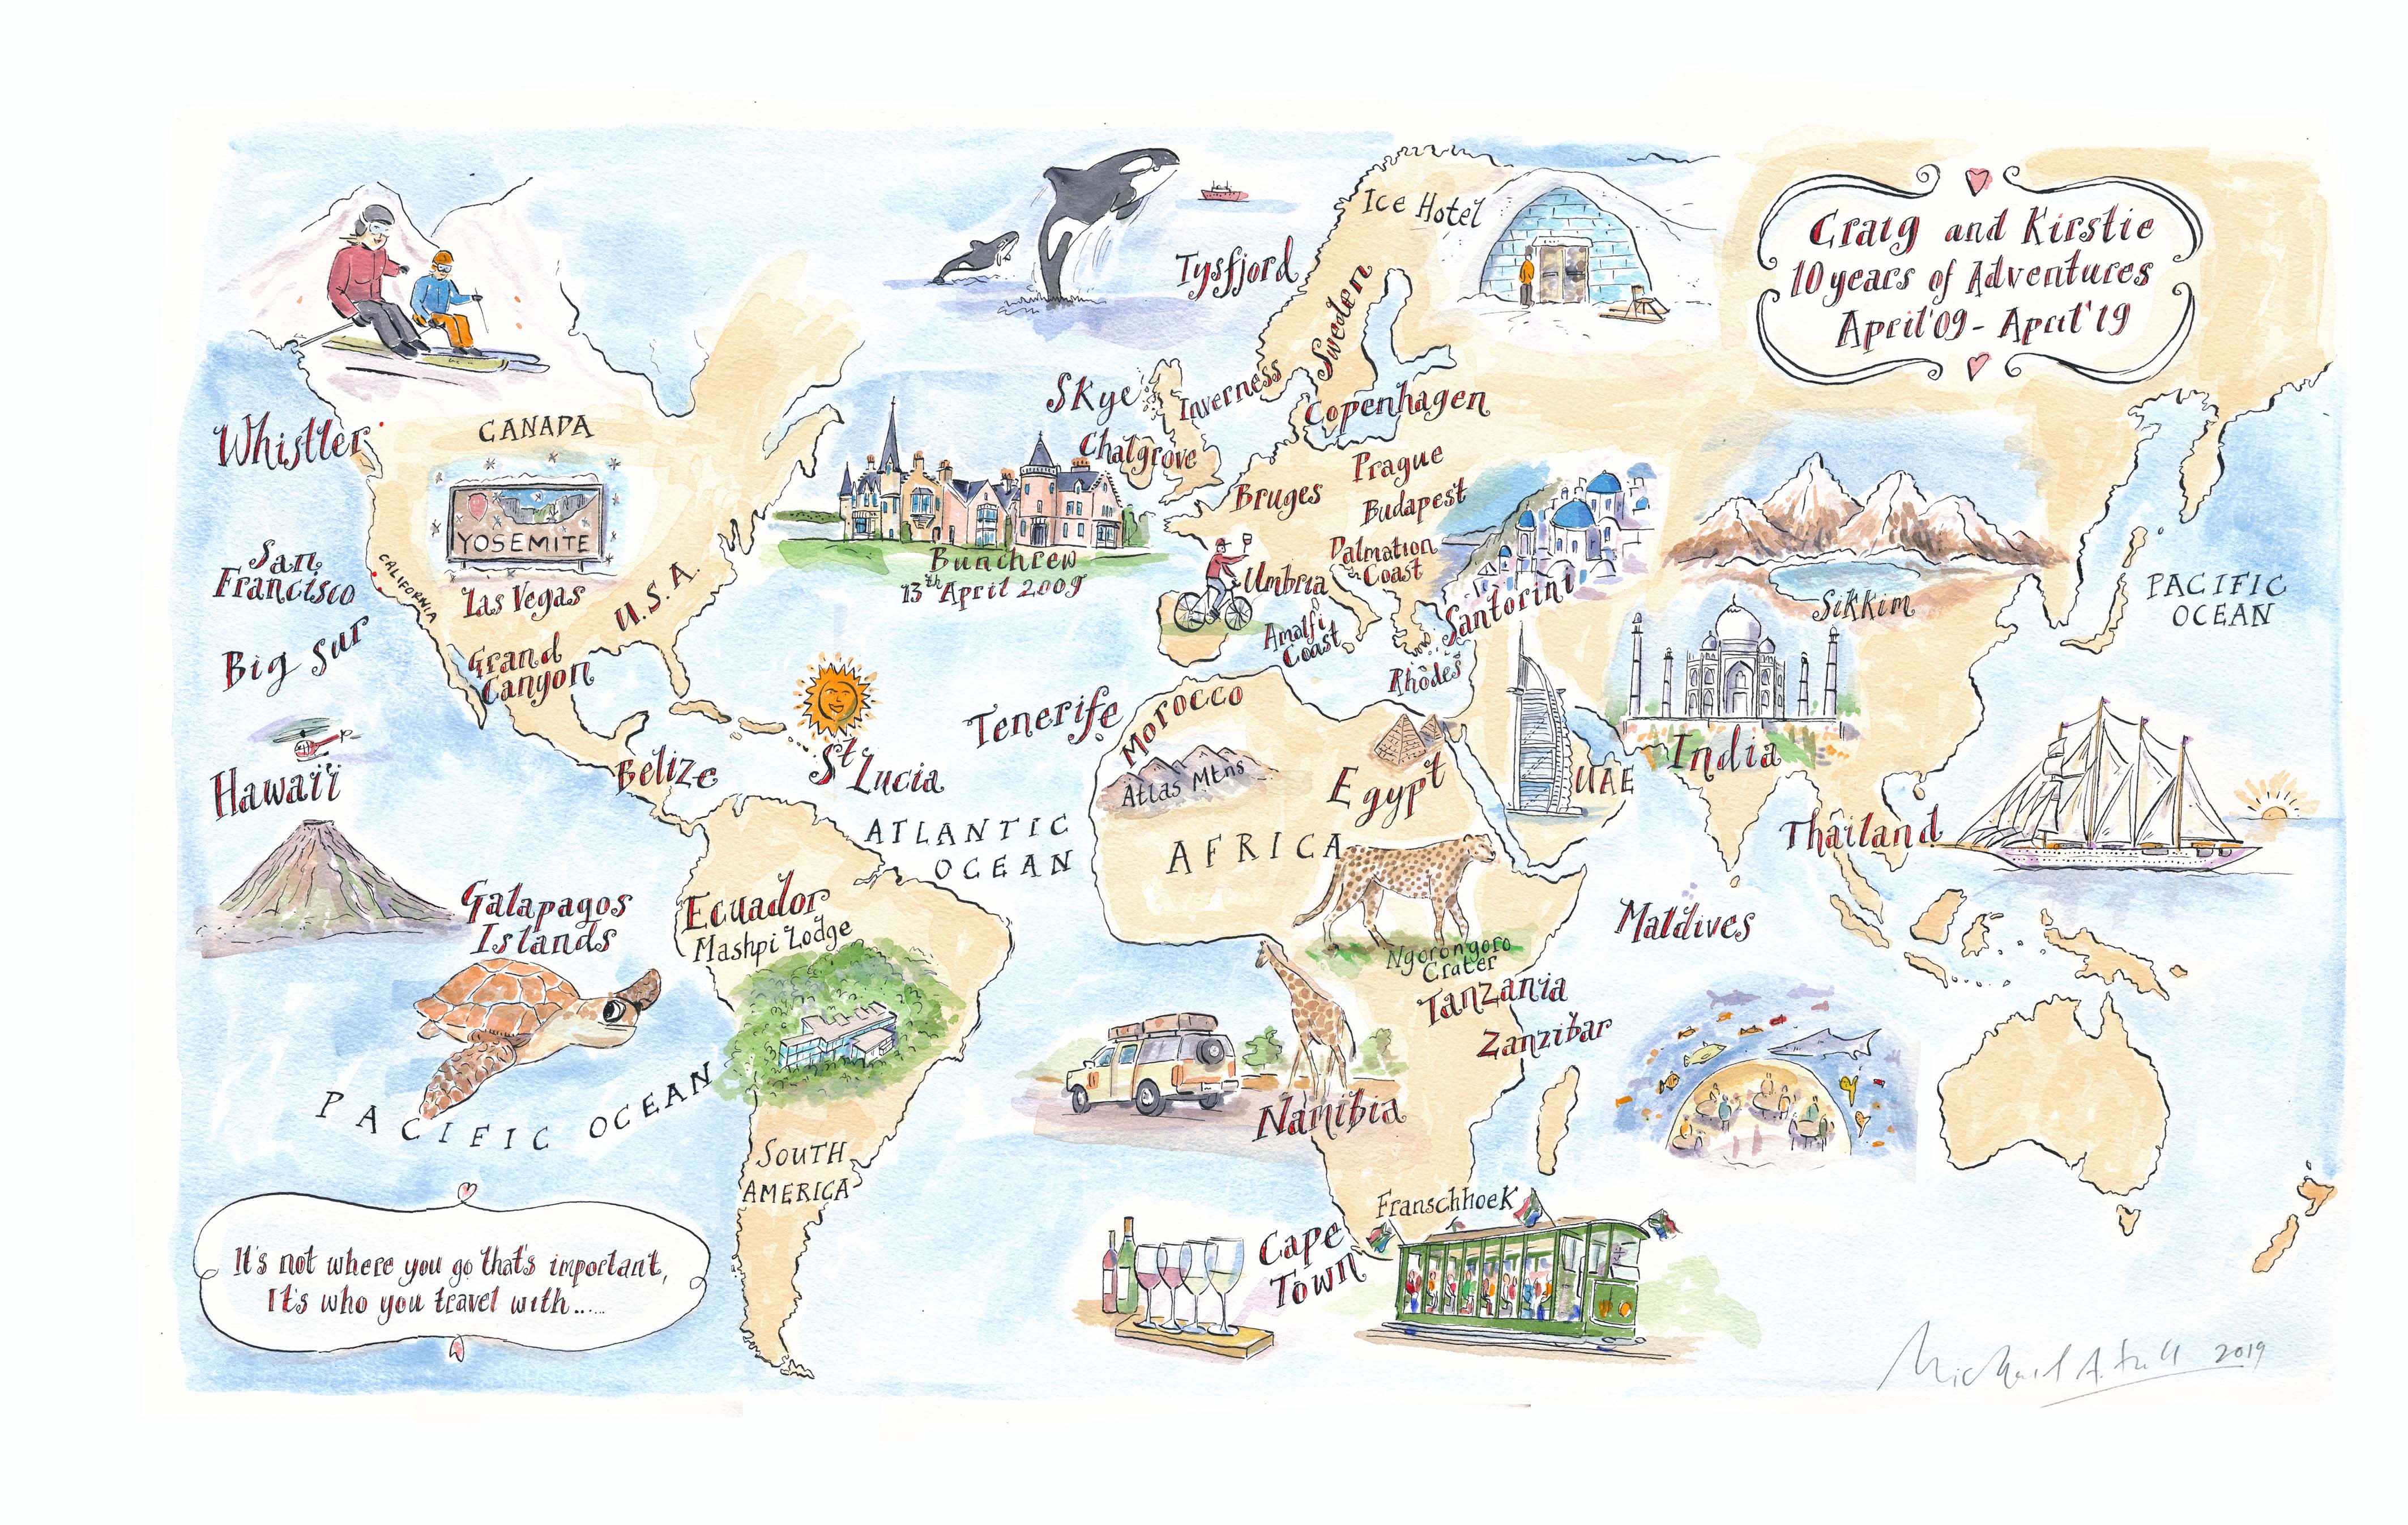 Craig and Kirstie
10 years of Adventures
April '09 - April '19
Ice Hotel
Tysfjord
Sweden
Skye
Inverness
Copenhagen
Chalgrove
Whistler
CANADA
Prague
Bruges
Budapest
YOSEMITE
Bunchrew
13th April 2009
San
Francisco
CALIFORNIA
Las Vegas
U.S.A.
Umbria
Dalmation
Coast
Santorini
Sikkim
PACIFIC
OCEAN
Big Sur
Grand
Canyon
Amalfi
Coast
Rhodes
Tenerife
Morocco
Atlas Mtns
Egypt
UAE
India
Hawaii
Belize
St Lucia
ATLANTIC
OCEAN
AFRICA
Thailand
Galapagos
Islands
Ecuador
Mashpi Lodge
Maldives
Ngorongoro
Crater
Tanzania
Zanzibar
PACIFIC OCEAN
Namibia
SOUTH
AMERICA
Franschhoek
Cape
Town
It's not where you go that's important,
It's who you travel with......
Michael A. 2019